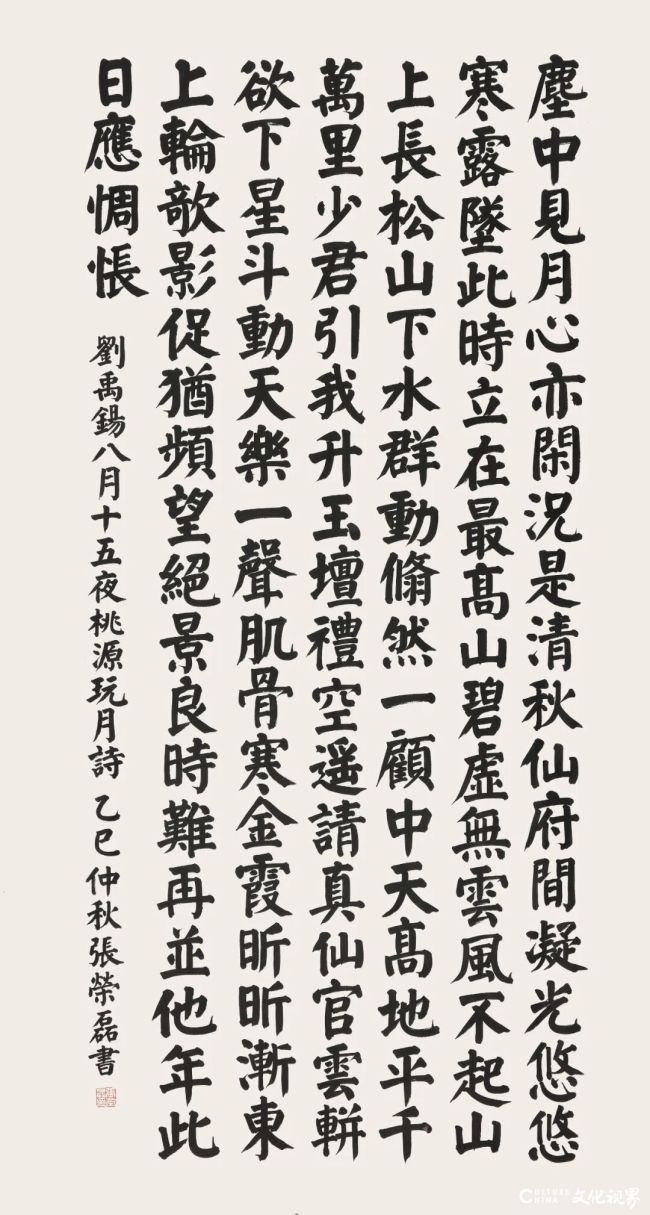 塵中見月心亦閑況是清秋仙府間凝光悠悠
寒露墜此時立在最高山碧虛無雲風不起山
上長松山下水群動翛然一顧中天高地平千
萬里少君引我升玉壇禮空遥請真仙官雲軿
欲下星斗動天樂一聲肌骨寒金霞昕昕漸東
上輪欹影促猶頻望絕景良時難再並他年此
日應惆悵
劉禹錫八月十五夜桃源玩月詩 乙巳仲秋張榮磊書
CULTURE CHINA 文化视界